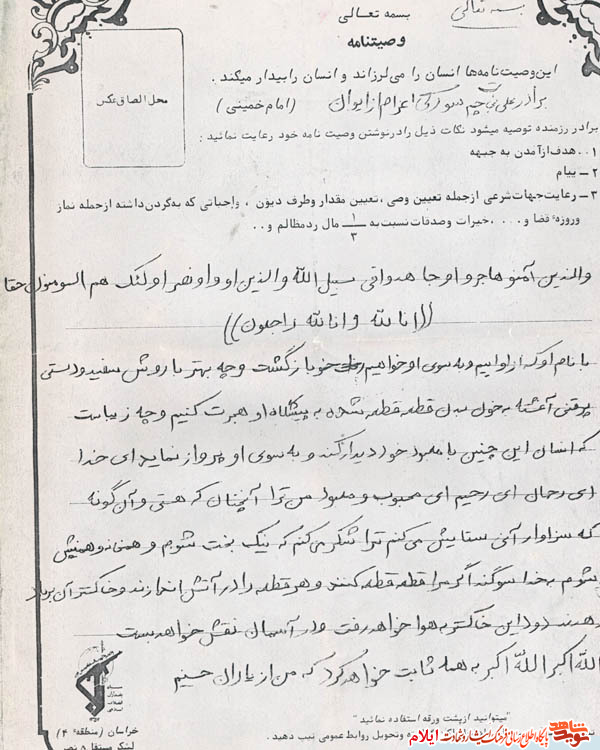 بسمه تعالی
بسمه تعالی
وصیتنامه
محل الصاق عکس
این وصیت‌نامه‌ها انسان را می‌لرزاند و انسان را بیدار میکند .
(امام خمینی)
برادر علی اعزام از ایوان
برادر رزمنده توصیه میشود نکات ذیل را در نوشتن وصیت نامه خود رعایت نمائید :
۱ . . هدف از آمدن به جبهه
۲ ــ پیام
۳ ــ رعایت جهات شرعی از جمله تعیین وصی ، تعیین مقدار وطرف دیون ، واجباتی که به‌گردن داشته از جمله نماز
وروزه قضا و . . . ، خیرات وصدقات نسبت به ۱/۳ مال رد مظالم و . .
والذین آمنو هاجرو او جاهدو افی سبیل الله والذین او واو نصر او لئک هم المومنون حقا
((انا لله و انا لله راجعون))
با نام او که از اوابیم و به سوی او خواهیم بازگشت و چه بهتر با روش سفید و دستی
آغشته به خون بدن قطعه قطعه شده به پیشگاه او هجرت کنیم و چه زیباست
که انسان این چنین با معبود خود دیدار کند و به سوی او پرواز نماید ای خدا
ای رحمان ای رحیم ای محبوب و معبود من ترا آنچنان که هستی و آن گونه
که سزاوار آنی ستایش می کنم ترا شکر می کنم که نیک بخت شوم و
بشوم به خدا سوگند اگر مرا قطعه قطعه کنند و هر قطعه را در آتش اندازند و خاکستر آن بر باد
دهند دود این خاکستر به هوا خواهد رفت و در آسمان نقش خواهد بست
الله اکبر الله اکبر به همه ثابت خواهد کرد که من از یاران حسینم
"میتوانید از پشت ورقه استفاده نمائید"
خراسان (منطقه ۴)
لشکر مستقل ۵ نصر
وتحویل روابط عمومی تیپ دهید .
نوید شاهد
پایگاه اطلاع رسانی فرهنگ ایثار و شهادت ایلام